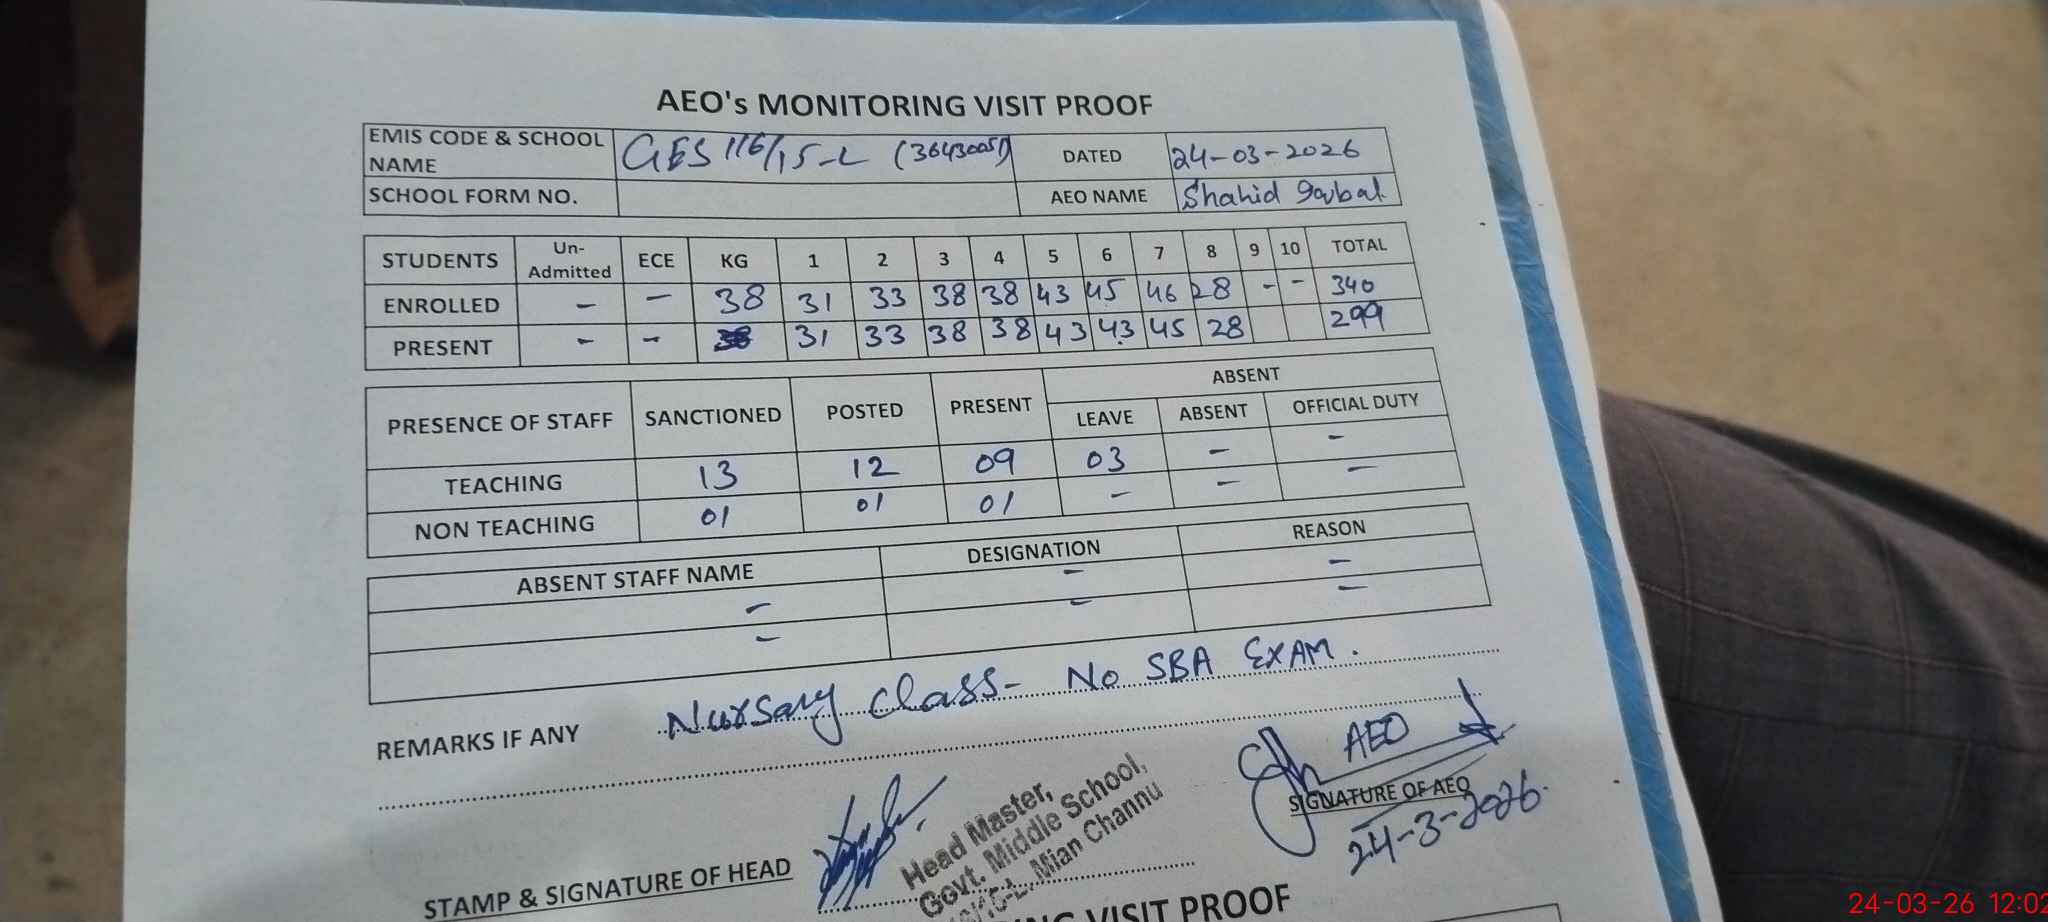 AEO's MONITORING VISIT PROOF
EMIS CODE & SCHOOL NAME GES 116/15-L (36430051) DATED 24-03-2026
SCHOOL FORM NO. AEO NAME Shahid Iqbal
STUDENTS Un-Admitted ECE KG 1 2 3 4 5 6 7 8 9 10 TOTAL
ENROLLED - - 38 31 33 38 38 43 45 46 28 - - 340
PRESENT - - 31 33 38 38 43 43 45 28 299
PRESENCE OF STAFF SANCTIONED POSTED PRESENT ABSENT
LEAVE ABSENT OFFICIAL DUTY
TEACHING 13 12 09 03 - -
NON TEACHING 01 01 01 - - -
ABSENT STAFF NAME DESIGNATION REASON
- - -
- - -
REMARKS IF ANY Nursary Class - No SBA EXAM.
AEO
SIGNATURE OF AEO
24-3-2026.
STAMP & SIGNATURE OF HEAD
Head Master,
Govt. Middle School,
Mian Channu
VISIT PROOF
24-03-26 12:02